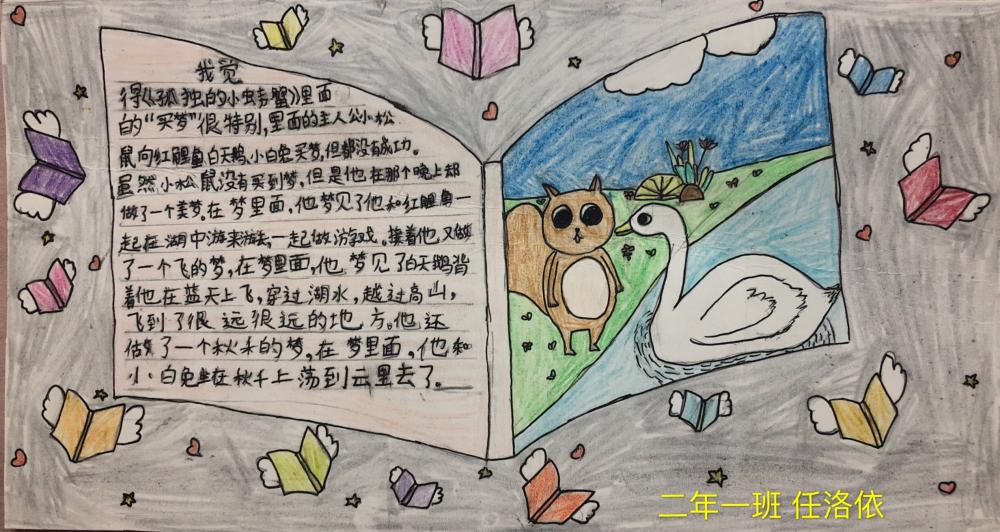 我觉
得《孤独的小螃蟹》里面
的“买梦”很特别,里面的主人公小松
鼠向红鲤鱼、白天鹅、小白兔买梦,但都没有成功。
虽然小松鼠没有买到梦,但是他在那个晚上却
做了一个美梦。在梦里面,他梦见了他和红鲤鱼一
起在湖中游来游去,一起做游戏。接着他又做
了一个飞的梦,在梦里面,他梦见了白天鹅背
着他在蓝天上飞,穿过湖水,越过高山,
飞到了很远很远的地方。他还
做了一个秋千的梦,在梦里面,他和
小白兔坐在秋千上荡到云里去了。
二年一班 任洛依